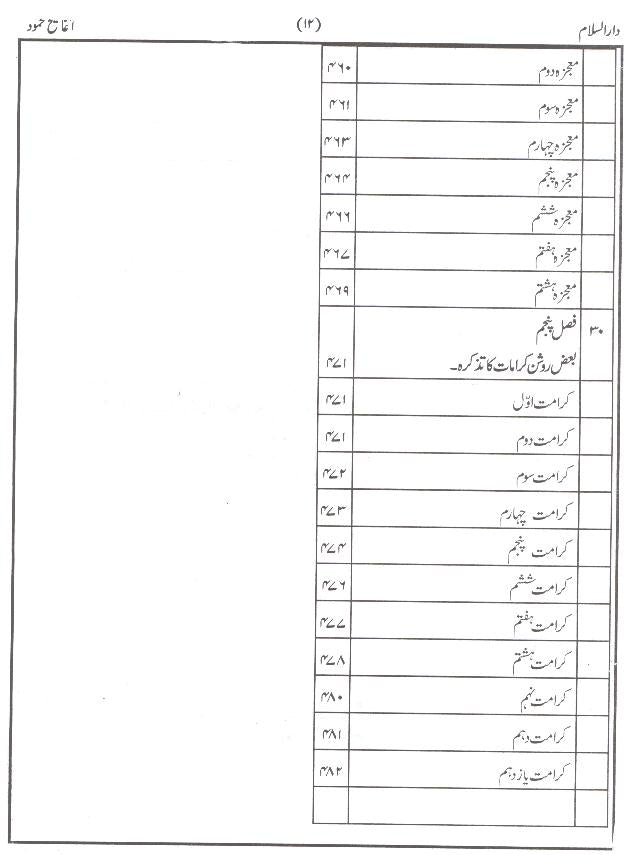 دارالسلام (۱۲) آغا شیخ حمود
معجزہ دوم ۴۶۰
معجزہ سوم ۴۶۱
معجزہ چہارم ۴۶۳
معجزہ پنجم ۴۶۴
معجزہ ششم ۴۶۶
معجزہ ہفتم ۴۶۷
معجزہ ہشتم ۴۶۹
۳۰ فصل پنجم
بعض روشن کرامات کا تذکرہ۔ ۴۷۱
کرامت اوّل ۴۷۱
کرامت دوم ۴۷۱
کرامت سوم ۴۷۲
کرامت چہارم ۴۷۳
کرامت پنجم ۴۷۴
کرامت ششم ۴۷۶
کرامت ہفتم ۴۷۷
کرامت ہشتم ۴۷۸
کرامت نہم ۴۸۰
کرامت دہم ۴۸۱
کرامت یازدہم ۴۸۲